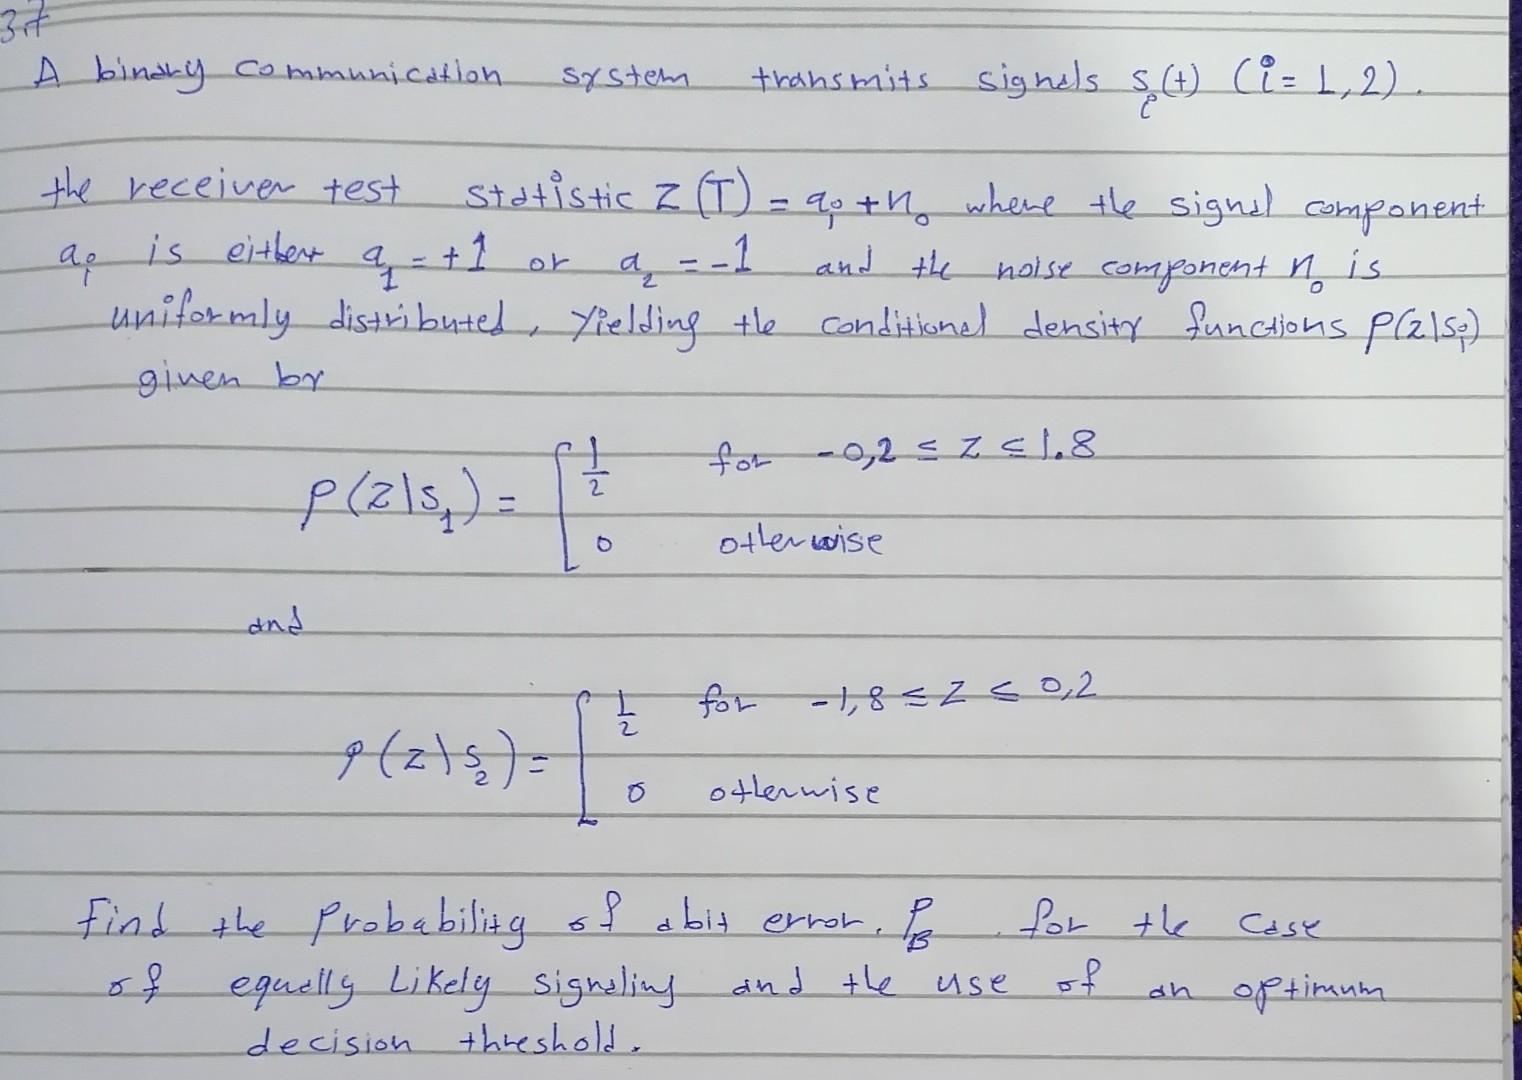 3.7
A binary communication system transmits signals sᵢ(t) (i = 1, 2).
the receiver test statistic Z(T) = aᵢ + n₀ where the signal component
aᵢ is either a₁ = +1 or a₂ = -1 and the noise component n₀ is
uniformly distributed, yielding the conditional density functions p(z|sᵢ)
given by
p(z|s₁) = [ 1/2 for -0,2 ≤ z ≤ 1.8
0 otherwise
and
p(z|s₂) = [ 1/2 for -1,8 ≤ z ≤ 0,2
0 otherwise
find the probability of a bit error, P_B, for the case
of equally likely signaling and the use of an optimum
decision threshold.